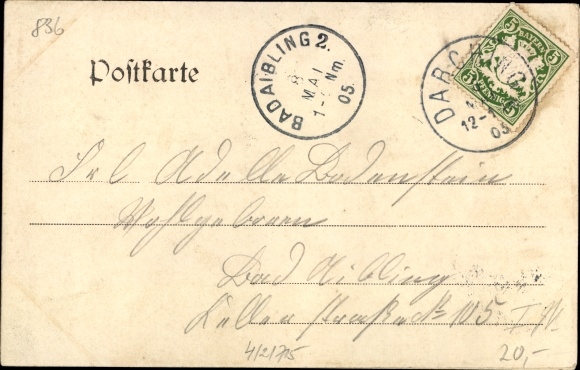 836
Postkarte
BAD AIBLING 2.
8 MAI
1-2 Nm.
05.
DARCH
12-
05
5 BAYERN 5
5 PFENNIG 5
Frl Adelle Bodenstein
Wohlgeboren
Bad Aibling
Kellerstraße № 105 I
4/2/75
20,-